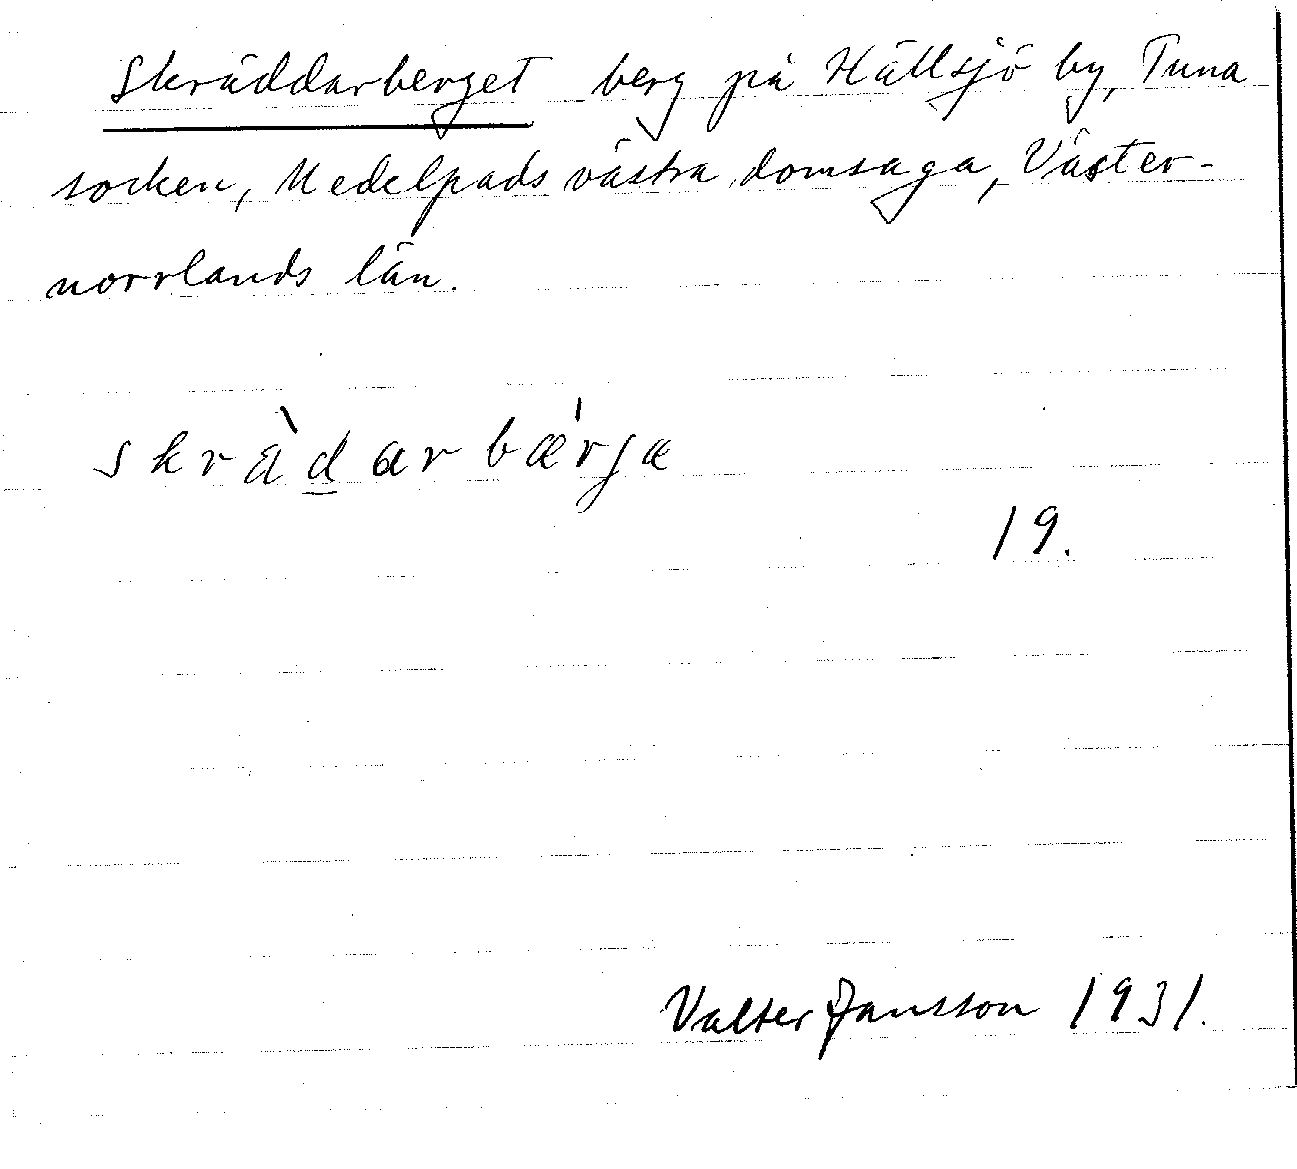 Skräddarberget berg på Hällsjö by, Tuna
socken, Medelpads västra domsaga, Väster-
norrlands län.
skràd̲arbǽrjæ
19.
Valter Jansson 1931.